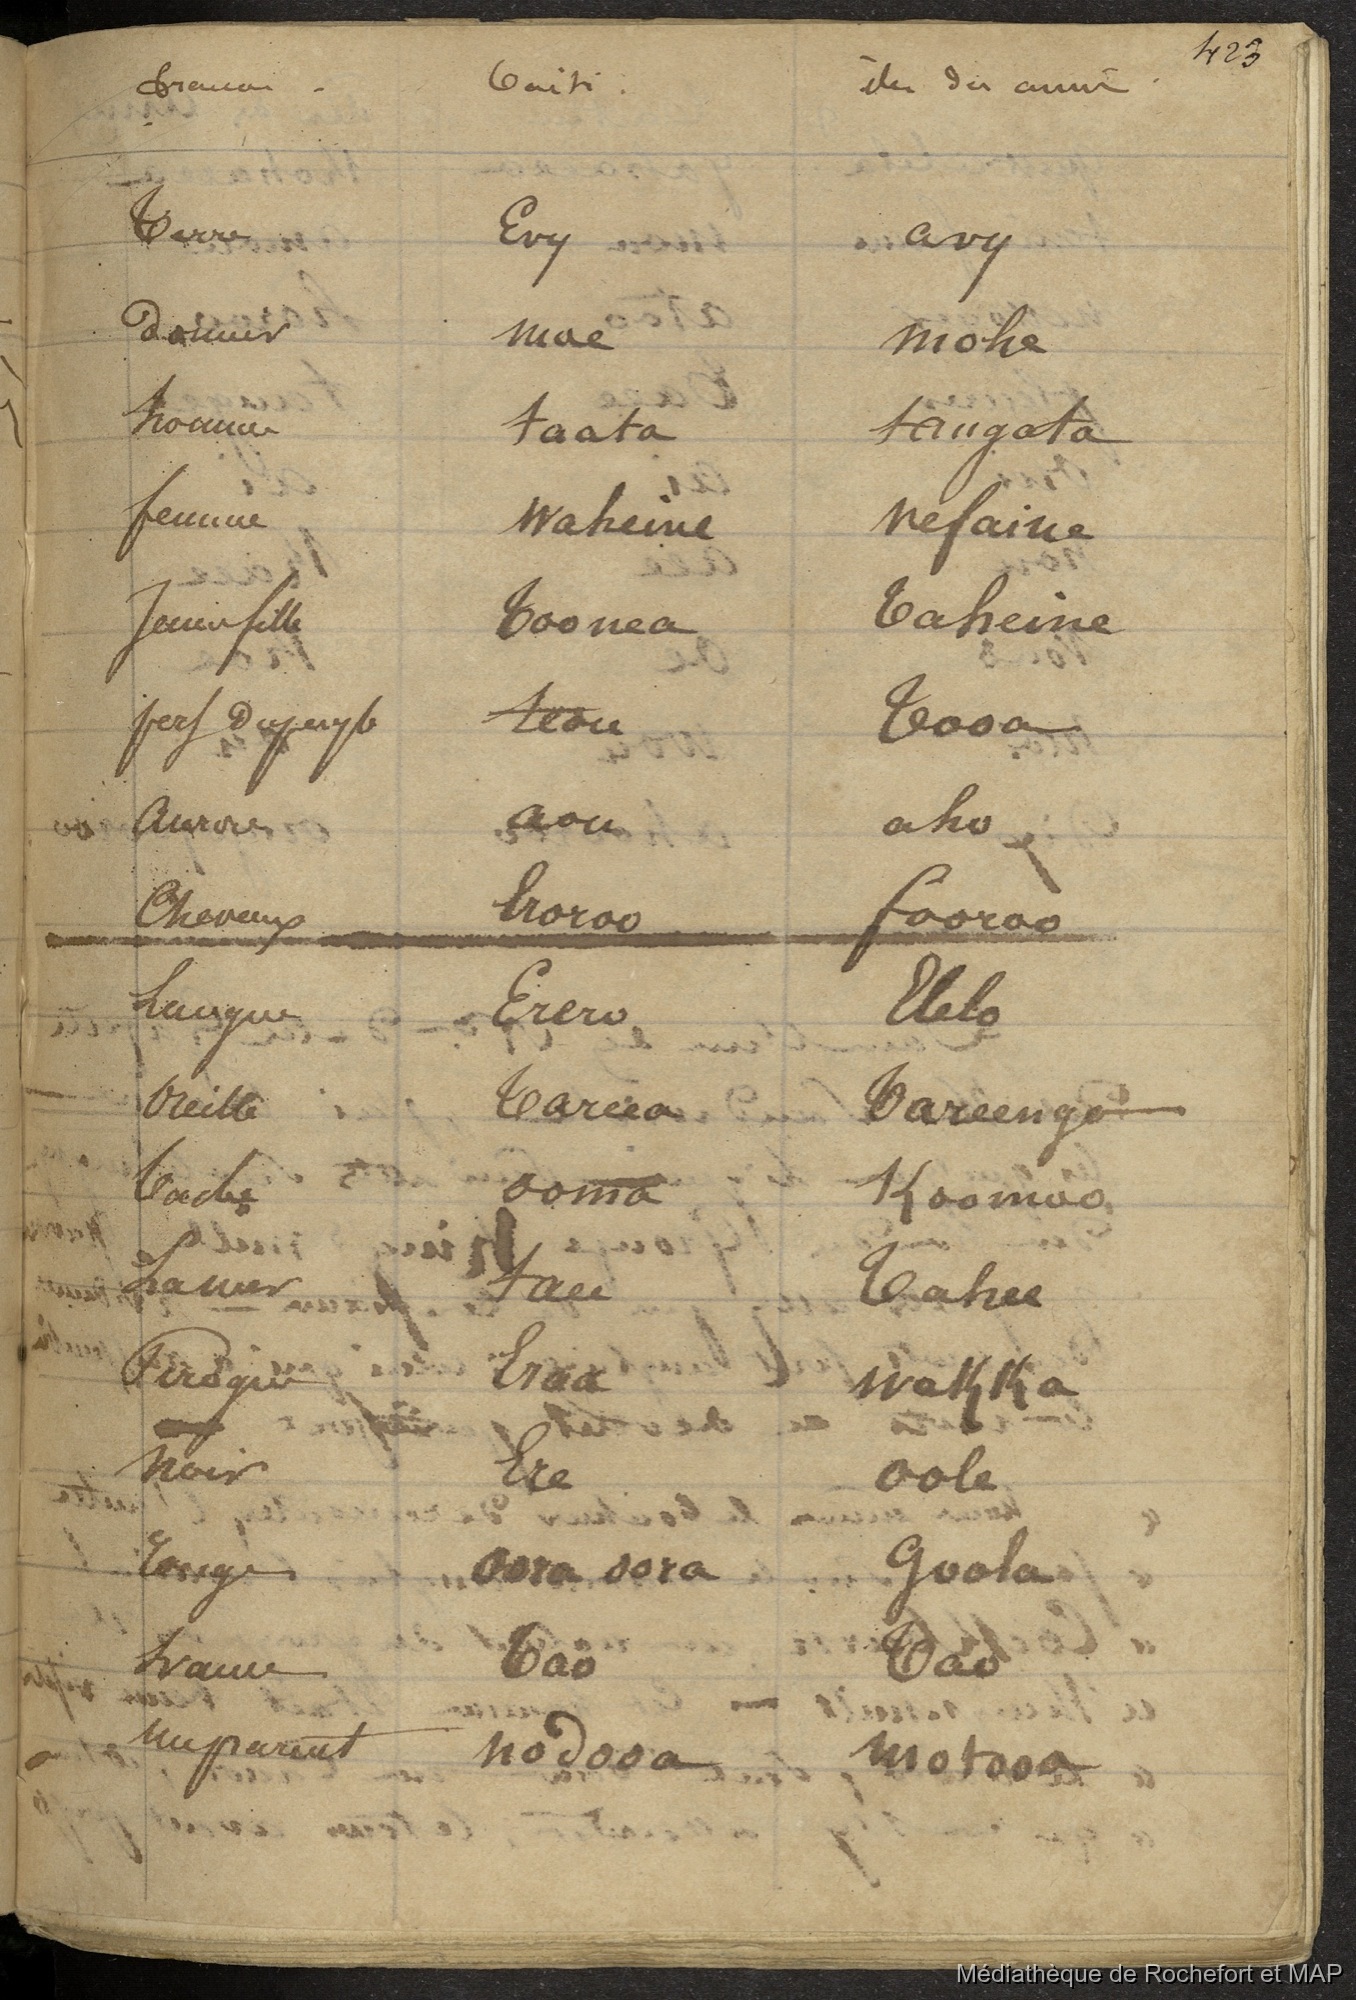 423
francai. Taiti. îles des amis.
Terre Evy avy
Dormir moe mohe
homme taata tangata
femme waheine vefaine
Jeune fille Toonea Taheine
teou Tooa
Aurore aou aho
Cheveux Eroroo fooroo
Langue Erero Elelo
Oreille Tareea Tareenga
ooma Koomoo
La mer taee Tahee
Pirogue Eraa wakka
Noir Ere oole
Rouge oora oora Goola
Tao Tao
un parent nodooa motooa
Médiathèque de Rochefort et MAP